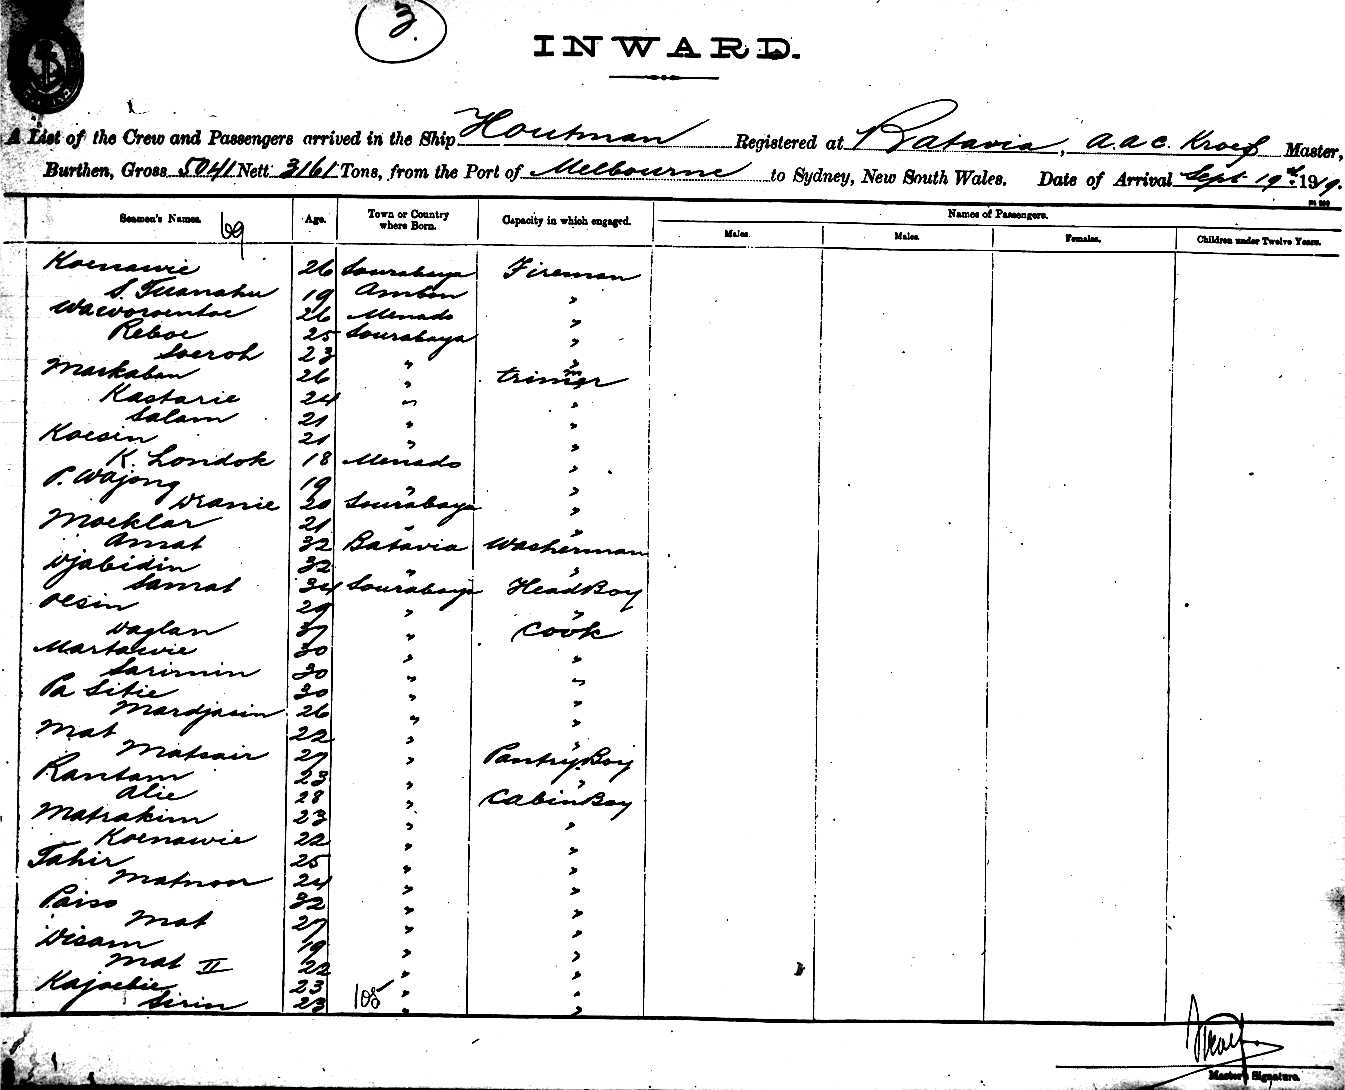 3.
INWARD.
A List of the Crew and Passengers arrived in the Ship Houtman Registered at Batavia, A.A.C. Kroef Master,
Burthen, Gross 5041 Nett 3161 Tons, from the Port of Melbourne to Sydney, New South Wales. Date of Arrival Sept 19th 1919.
Seamen's Names. Age. Town or Country where Born. Capacity in which engaged. Names of Passengers.
Males. Males. Females. Children under Twelve Years.
Koenawie 26 Sourabaya Fireman
S. Tuanahu 19 Ambon "
Waworoentoe 26 Menado "
Reboe 25 Sourabaya "
Soeroh 23 " "
Markaban 26 " trimmer
Kastarie 24 " "
Salam 21 " "
Koesin 21 " "
K. Londok 18 Menado "
P. Wajong 19 " "
Dranie 20 Sourabaya "
Moeklar 21 " "
Amat 32 Batavia Washerman
Djabidin 32 " "
Samat 34 Sourabaya Head Boy
Oesin 29 " "
Daglan 37 " Cook
Martawie 30 " "
Sarimin 30 " "
Pa Sitie 30 " "
Mardjasin 26 " "
Mat 22 " "
Matsair 27 " Pantry Boy
Rantam 23 " "
Alie 28 " Cabin Boy
Matrakim 23 " "
Koenawie 22 " "
Tahir 25 " "
Matnoor 24 " "
Pairo 32 " "
Mat 27 " "
Disam 19 " "
Mat II 22 " "
Kajoebie 23 " "
Sirin 23 " "
108
Master's Signature.